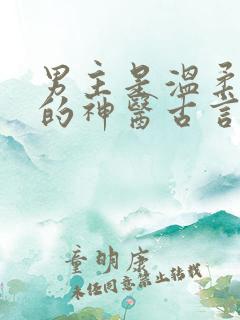 男主是温柔
的神醫古言
童明康
未经同意禁止转载